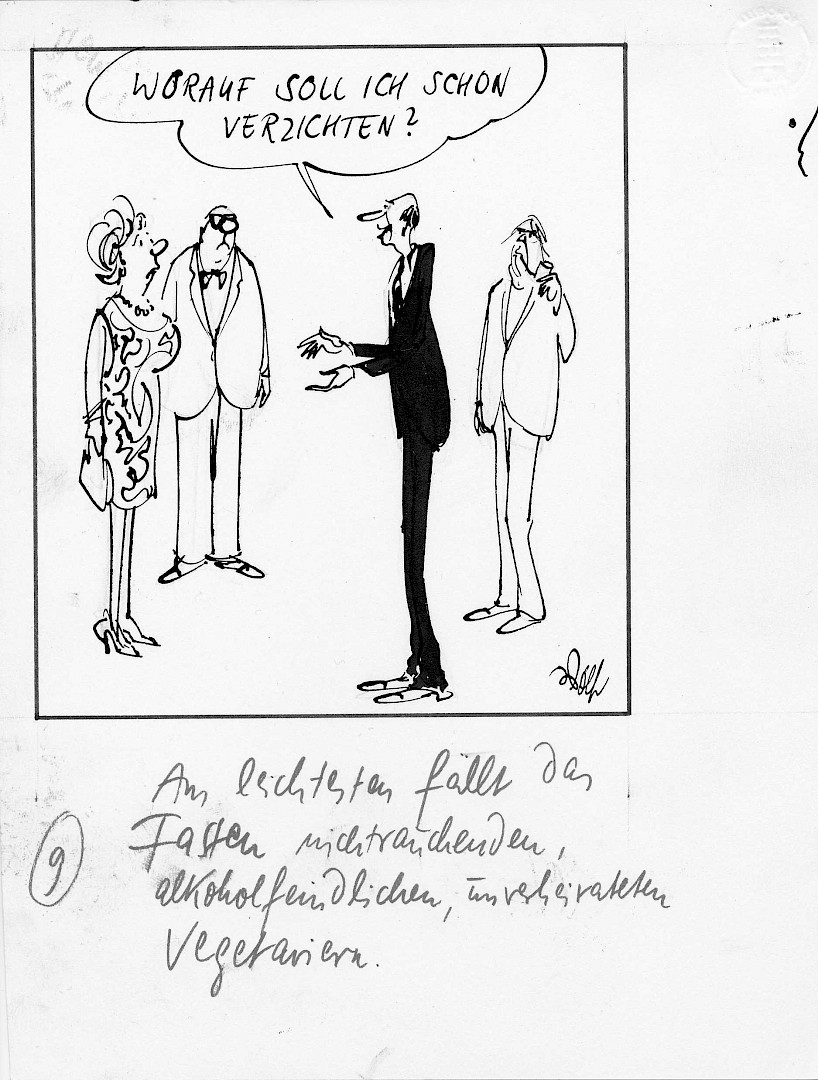 WORAUF SOLL ICH SCHON
VERZICHTEN?
Am leichtesten fällt das
Fasten nichtrauchenden,
9
alkoholfeindlichen, unverheirateten
Vegetariern.